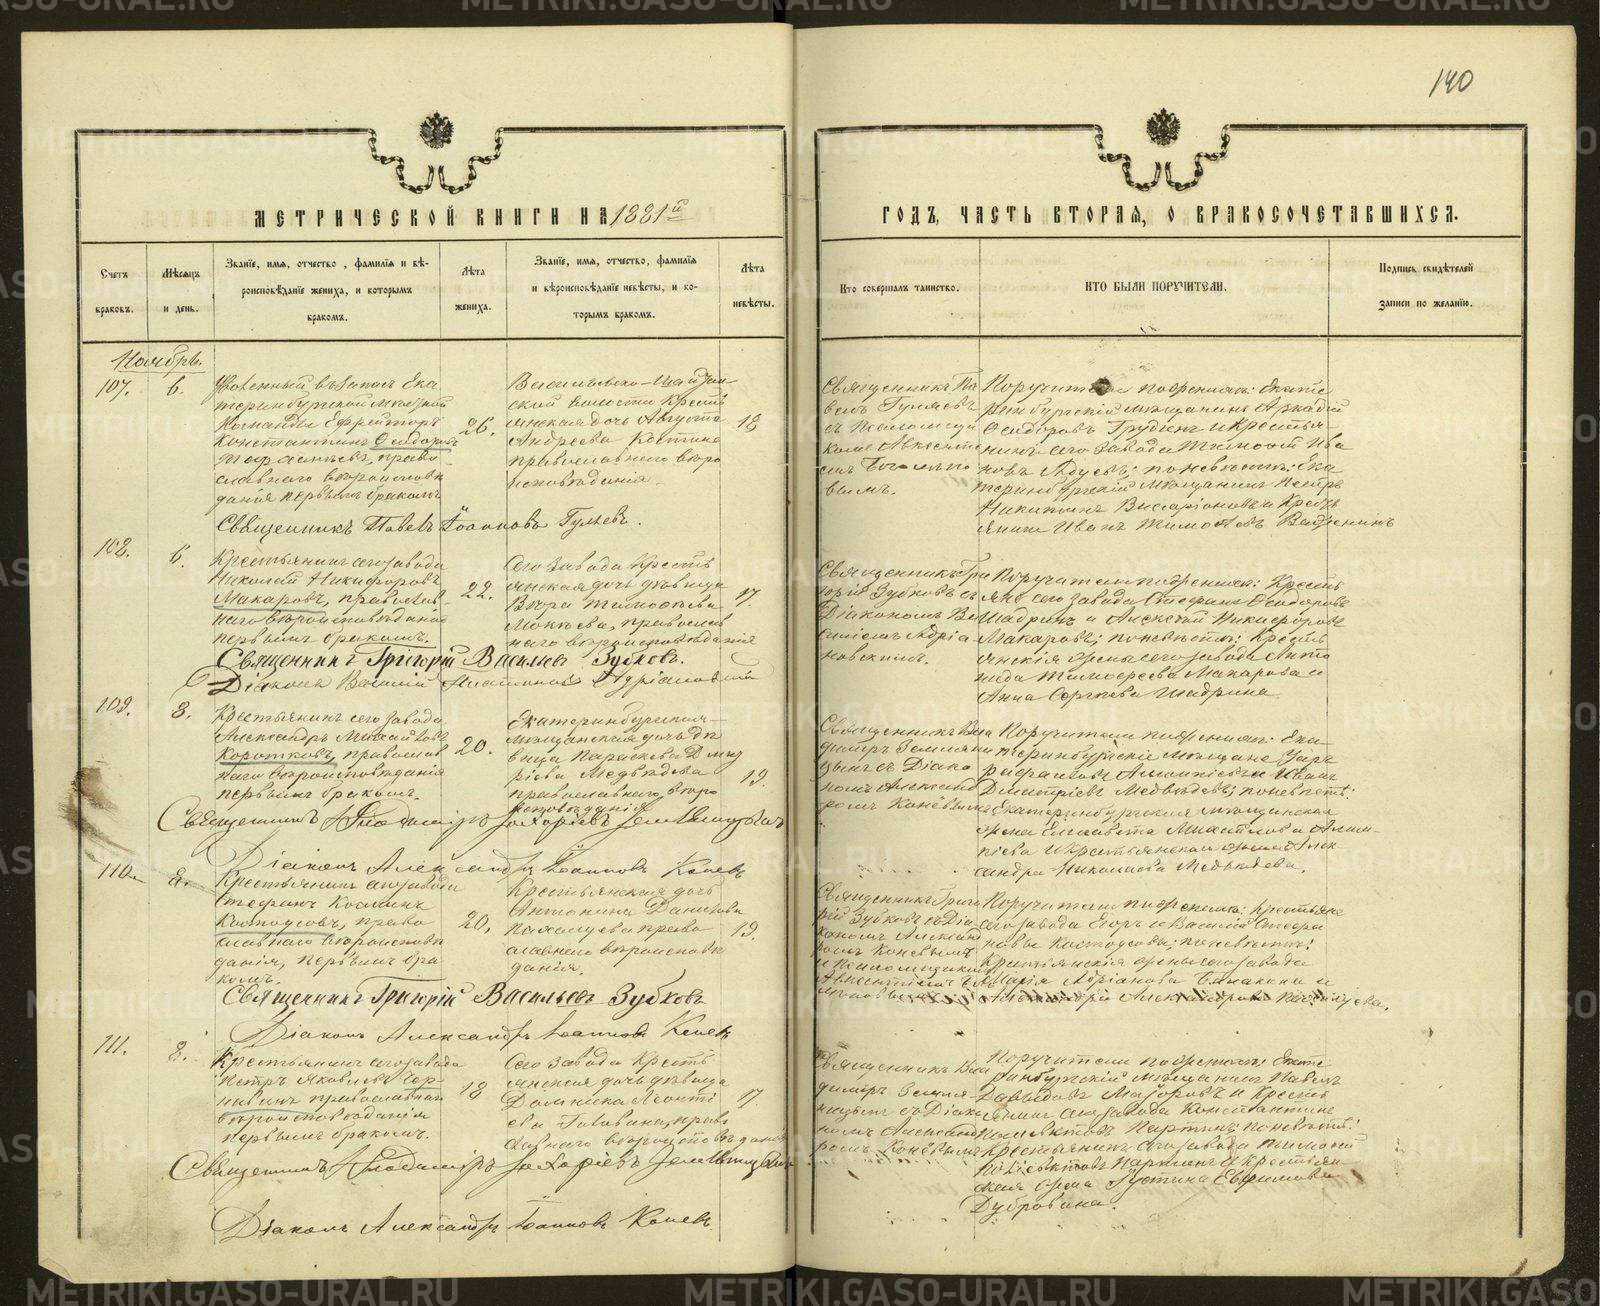 140
МЕТРИЧЕСКОЙ КНИГИ НА 1881й
ГОДЪ, ЧАСТЬ ВТОРАЯ, О БРАКОСОЧЕТАВШИХСЯ.
Счетъ браковъ.
Мѣсяцъ и день.
Званіе, имя, отчество, фамилія и вѣ-
роисповѣданіе жениха, и которымъ
бракомъ.
Лѣта жениха.
Званіе, имя, отчество, фамилія
и вѣроисповѣданіе невѣсты, и ко-
торымъ бракомъ.
Лѣта невѣсты.
Кто совершалъ таинство.
КТО БЫЛИ ПОРУЧИТЕЛИ.
Подпись свидѣтелей
записи по желанію.
Ноябрь.
107.
6.
Уволенный въ запасъ Ека
теринбургской мѣстной
Команды Ефрейторъ
Константинъ Ѳедоровъ
право
славнаго вѣроисповѣ
данія первымъ бракомъ
26.
ской волости Кресть
янская доч Августа
Андреева Костина
православнаго вѣро
исповѣданія
18
Священникъ Па
велъ Гуляевъ
съ Псаломщи
комъ
вымъ.
Поручители по женихѣ: Екате
ринбургскій мѣщанинъ Аркадій
Ѳедоровъ Грудинъ и Крестья
нинъ сего завода Тимоѳей Ива
новъ; по невѣстѣ: Ека
теринбургскій Мѣщанинъ Петръ
Никитинъ и Кресть
янинъ Иванъ Тимоѳеевъ
Священникъ Павелъ Іоанновъ Гуляевъ.
108.
6.
Крестьянинъ сего завода
Николай Никифоровъ
Макаровъ, православ
наго вѣроисповѣданія
первымъ бракомъ.
22.
Сего завода Кресть
янская дочь дѣвица
Вѣра Тимоѳеева
Мокѣева, православ
наго вѣроисповѣданія
17.
Священникъ Гри
горій Зубковъ съ
Діакономъ Ва
силіемъ Адріа
новскимъ.
Поручители по женихѣ: Кресть
яне сего завода Стефанъ Ѳедоровъ
Шадринъ и Алексѣй Никифоровъ
Макаровъ; по невѣстѣ: Кресть
янскія жены сего завода Анто
нида Тимоѳеева Макарова и
Анна Сергѣева Шадрина
Священникъ Григорій Васильевъ Зубковъ.
Діаконъ Василій Адріановскій
109.
8.
Крестьянинъ сего завода
Александръ Михайловъ
Коротковъ, православ
наго вѣроисповѣданія
первымъ бракомъ.
20.
Екатеринбургская
мѣщанская дочь дѣ
вица Параскева Дмит
ріева Медвѣдева
православнаго вѣро
исповѣданія
19.
Священникъ Вла
диміръ Земляни
цынъ съ Діако
номъ Александ
ромъ Каневымъ
Поручители по женихѣ: Ека
теринбургскіе мѣщане
и Иванъ
Дмитріевъ Медвѣдевъ; по невѣстѣ:
Екатеринбургская мѣщанская
жена Елизавета Михайлова
и Крестьянская жена Алек
сандра Николаева Медвѣдева.
Священникъ Владиміръ Захаріевъ Земляницынъ
Діаконъ Александръ Іоанновъ Каневъ
110.
8.
Крестьянинъ сего завода
Стефанъ Козминъ
Костоусовъ, право
славнаго вѣроисповѣ
данія, первымъ бра
комъ.
20.
Крестьянская дочь
Антонина Данилова
Пахалуева право
славнаго вѣроисповѣ
данія.
19.
Священникъ Григо
рій Зубковъ съ Діа
кономъ Александ
ромъ Каневымъ
и Псаломщикомъ
Поручители по женихѣ: Крестьяне
сего завода Егоръ и Василій Стефа
новы Костоусовы; по невѣстѣ:
Крестьянскія жены сего завода
Марія Адріанова и
Александрова Пахалуева.
Священникъ Григорій Васильевъ Зубковъ
Діаконъ Александръ Іоанновъ Каневъ
111.
8.
Крестьянинъ сего завода
Петръ Яковлевъ Чер-
навинъ православнаго
вѣроисповѣданія
первымъ бракомъ.
18
Сего завода Кресть
янская дочь дѣвица
Домника Леонті
ева Главина, право
славнаго вѣроисповѣданія
17.
Священникъ Вла
диміръ Земля-
ницынъ съ Діако
номъ Александ
ромъ Каневымъ
Поручители по женихѣ: Екате
ринбургскій мѣщанинъ Павелъ
Давыдовъ Маіоровъ и Кресть
янинъ сего завода Константинъ
Поліевктовъ Партинъ; по невѣстѣ:
Крестьянинъ сего завода Тимоѳей
Поліевктовъ Партинъ и Крестьян
ская жена Іустина Евфимова
Дубровина.
Священникъ Владиміръ Захаріевъ Земляницынъ
Діаконъ Александръ Іоанновъ Каневъ.
METRIKI.GASO-URAL.RU